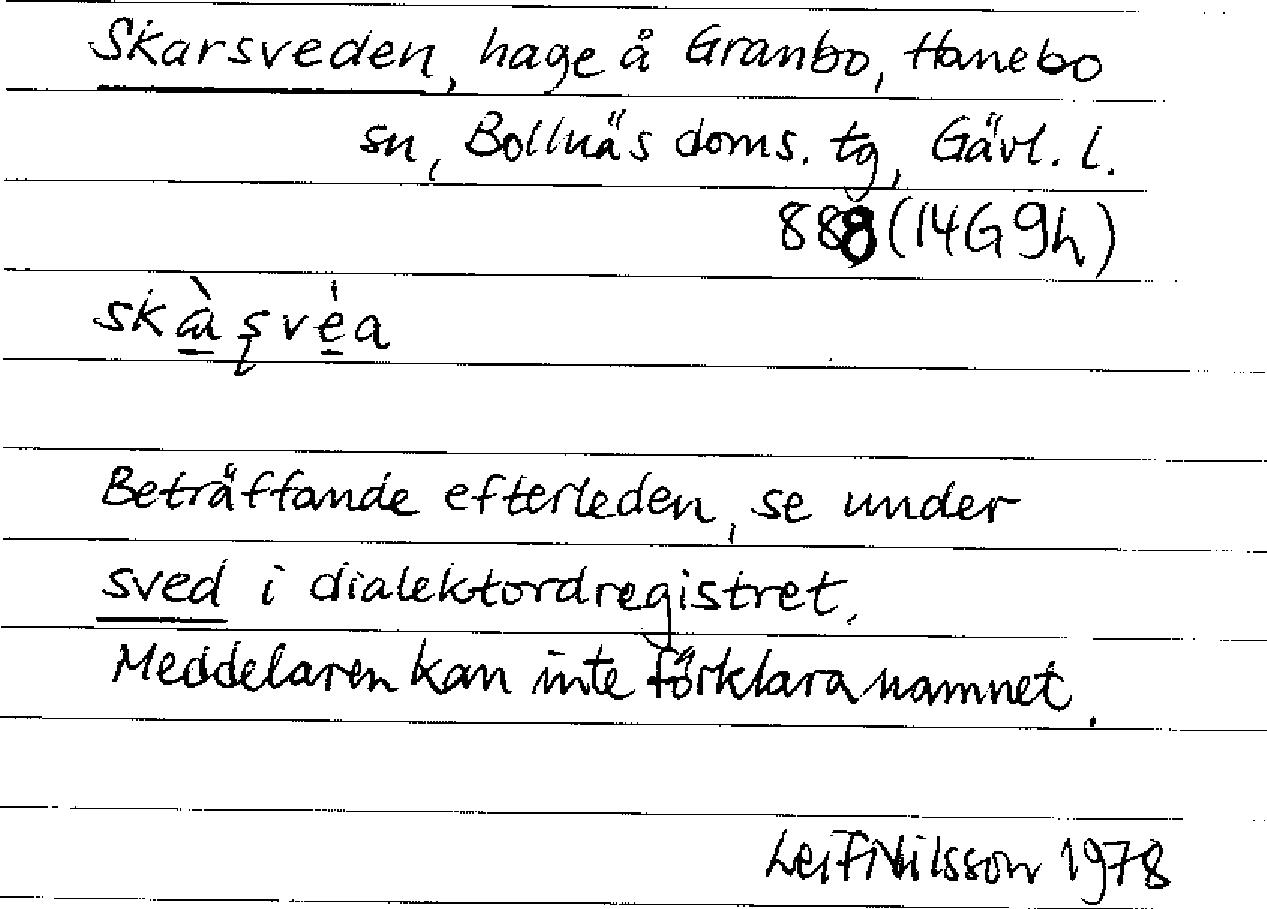 Skarsveden, hage å Granbo, Hanebo
sn, Bollnäs doms. tg, Gävl. l.
888 (14G 9h)
skàʂvéa
Beträffande efterleden, se under
sved i dialektordregistret.
Meddelaren kan inte förklara namnet.
Leif Nilsson 1978